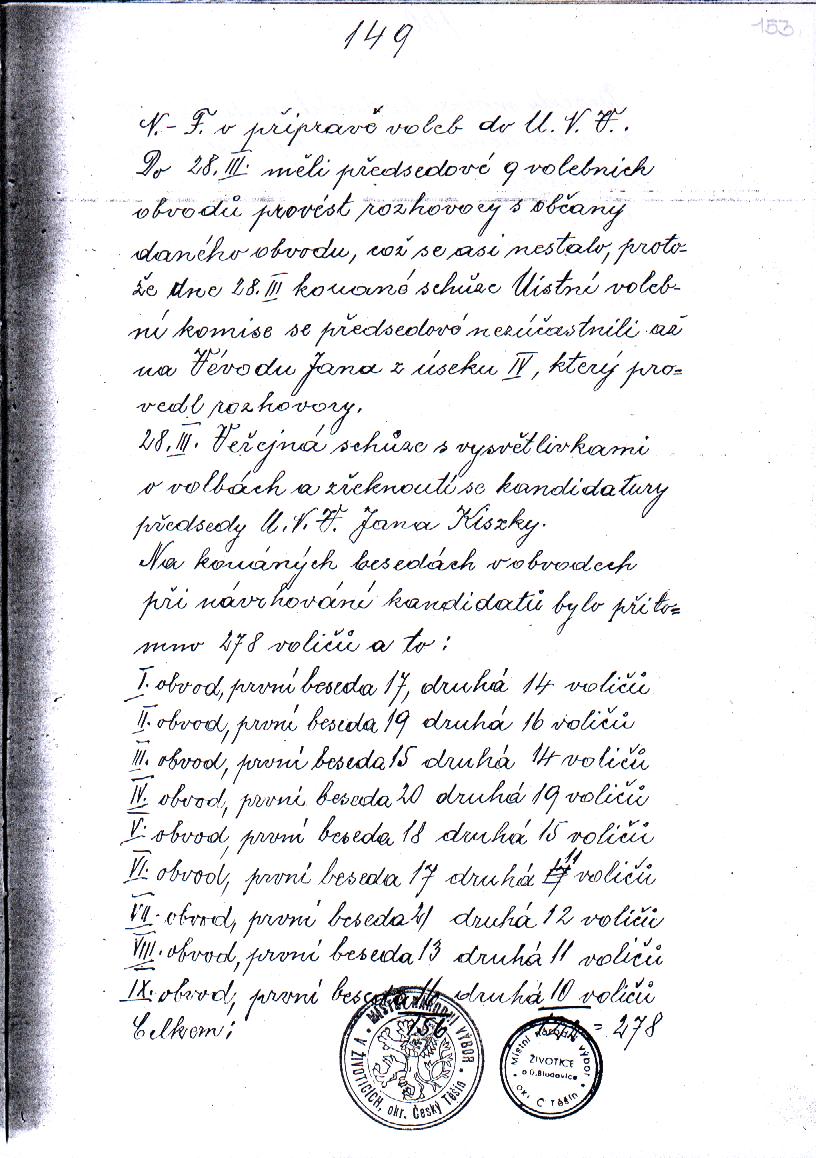 149
153
N.-F. v přípravě voleb do M.N.V.
Do 28.III. měli předsedové 9 volebních
obvodů provést rozhovory s občany
daného obvodu, což se asi nestalo, proto=
že dne 28.III konané schůze Místní voleb-
ní komise se předsedové nezúčastnili až
na Vévodu Jana z úseku IV, který pro=
vedl rozhovory.
28.III. Veřejná schůze s vysvětlivkami
o volbách a zřeknoutí se kandidatury
předsedy M.N.V. Jana Kiszky.
Na konáných besedách v obvodech
při návrhování kandidatů bylo příto=
mno 278 voličů a to:
I. obvod, první beseda 17, druhá 14 voličů
II. obvod, první beseda 19 druhá 16 voličů
III. obvod, první beseda 15 druhá 14 voličů
IV. obvod, první beseda 20 druhá 19 voličů
V. obvod, první beseda 18 druhá 15 voličů
VI. obvod, první beseda 17 druhá 11 voličů
VII. obvod, první beseda 21 druhá 12 voličů
VIII. obvod, první beseda 13 druhá 11 voličů
IX. obvod, první beseda druhá 10 voličů
Celkem: 156 = 278
MÍSTNÍ NÁRODNÍ VÝBOR
V ŽIVOTICÍCH, okr. Český Těšín
Místní národní výbor
ŽIVOTICE
o.p. Bludovice
okr. Č Těšín